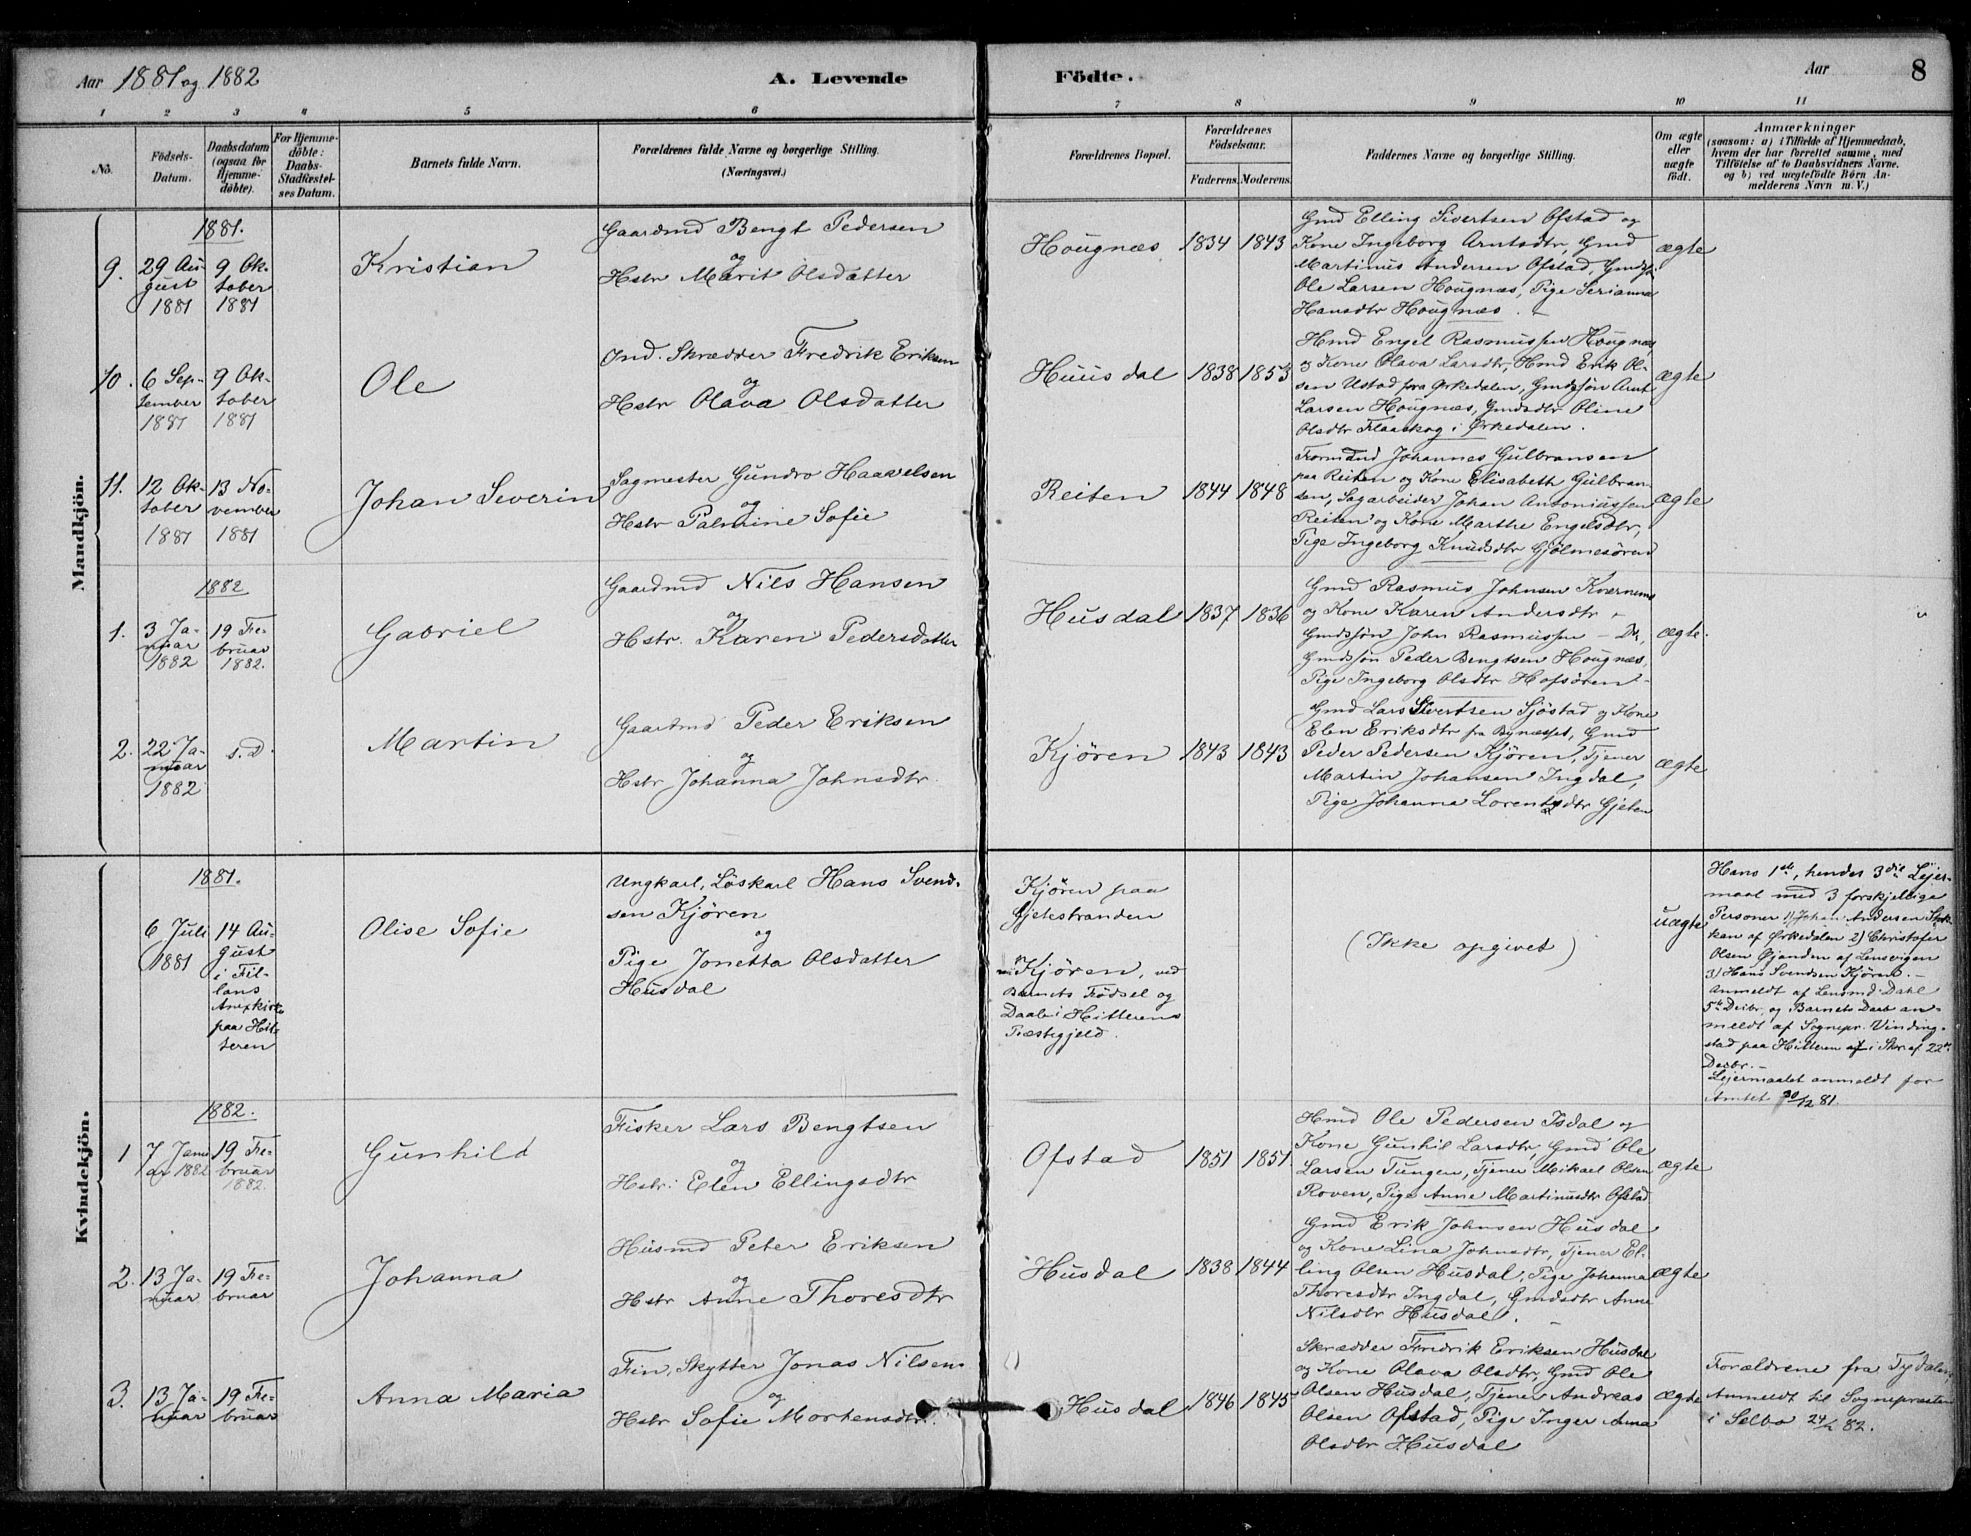 Aar 1881 og 1882
A. Levende Födte.
Aar
8
1 2 3 4 5 6 7 8 9 10 11
No.
Födsels-Datum.
Daabsdatum (ogsaa för Hjemme-döbte).
For Hjemme-döbte: Daabs-Stadfæstel-ses Datum.
Barnets fulde Navn.
Forældrenes fulde Navne og borgerlige Stilling.
(Næringsvei.)
Forældrenes Bopæl.
Forældrenes Födselsaar.
Faderens. Moderens.
Faddernes Navne og borgerlige Stilling.
Om ægte eller uægte födt.
Anmærkninger
(saasom: a) i Tilfælde af Hjemmedaab,
hvem der har forrettet samme, med
Tilföielse af to Daabsvidners Navne.
og b) ved uægtefödte Börn An-
melderens Navn m. V.)
Mandkjön.
1881.
9.
29 Au-
gust
1881
9 Ok-
tober
1881
Kristian
Gaardmd Bengt Pedersen
og
Hstr Marit Olsdatter
Hougnæs
1834 1843
Gmd Elling Sivertsen Ofstad og
Kone Ingeborg Arntsdtr, Gmd
Martinus Andersen Ofstad, Gmdss.
Ole Larsen Hougnæs, Pige Serianna
Hansdtr Hougnæs.
ægte
10.
6 Sep-
tember
1881
9 Ok-
tober
1881
Ole
Ind. Skrædder Fredrik Eriksen
og
Hstr Olava Olsdatter
Huusdal
1838 1853
Hmd Engel Rasmussen Hougnæs,
og Kone Olava Larsdtr, Hmd Erik Ol-
sen Ustad fra Ørkedalen, Gmdssøn Arnt
Larsen Hougnæs, Gmdsdtr Oline
Olsdtr Flaaskog i Ørkedalen.
ægte
11.
12 Ok-
tober
1881
13 No-
vember
1881
Johan Severin
Sagmester Gundro Haavelsen
og
Hstr Palmine Sofie
Reiten
1844 1848
Formand Johannes Gulbransen
paa Reiten og Kone Elisabeth Gulbran-
sen, Sagarbeider Johan Antoniussen
Reiten og Kone Marthe Engelsdtr,
Pige Ingeborg Knudsdtr Gjølmesøren
ægte
1882
1.
3 Ja-
nuar
1882
19 Fe-
bruar
1882.
Gabriel
Gaardmd Nils Hansen
og
Hstr. Karen Pedersdatter
Husdal
1837 1836
Gmd Rasmus Johnsen Kvernmo
og Kone Karen Andersdtr -
Gmdssøn John Rasmussen - Do,
Gmdssøn Peder Bengtsen Hougnæs,
Pige Ingeborg Olsdtr Hofsøren
ægte.
2.
22 Ja-
nuar
1882
s. D.
Martin
Gaardmd Peder Eriksen
og
Hstr Johanna Johnsdtr.
Kjøren
1843 1843
Gmd Lars Sivertsen Sjöstad og Kone
Elen Eriksdtr fra Bynæsset, Gmd
Peder Pedersen Kjøren, Tjener
Martin Johansen Ingdal,
Pige Johanna Lorentzdtr Gjelen
ægte
Kvindekjön.
1881.
6 Juli
1881
14 Au-
gust
i Fil-
lans
Anexkirke
paa Hit-
teren
Olise Sofie
Ungkarl, Löskarl Hans Svend-
sen Kjøren
og
Pige Jonetta Olsdatter
Husdal
Kjøren paa
Gjetestranden
Kjøren, ved
Barnets Fødsel og
Daab i Hitterens
Præstegjeld.
(Ikke opgivet)
uægte
Hans 1ste, hendes 3die Lejer-
maal med 3 forskjellige
Personer 1) Johan Andersen
af Ørkedalen 2) Christofer
Olsen Øjanden af Lensvigen
3) Hans Svendsen Kjøren. -
Anmeldt af Lensmd Dahl
5te Decbr. og Barnets Daab an-
meldt af Sognepr. Vinding-
stad paa Hitteren i Skr. af 22de
Decbr. -
Lejermaalet anmeldt for
Amtet 30/12 81.
1882.
1
7 Janu
ar 1882
19 Fe-
bruar
1882.
Gunhild
Fisker Lars Bengtsen
og
Hstr: Elen Ellingsdtr
Ofstad
1851 1851
Hmd Ole Pedersen Isdal og
Kone Gunhil Larsdtr, Gmd Ole
Larsen Tungen, Tjener Mikael Olsen
Roven, Pige Anne Martinusdtr Ofstad
ægte
2.
13 Ja-
nuar
19 Fe-
bruar
Johanna
Husmd Peter Eriksen
og
Hstr Anne Thoresdtr
Husdal
1838 1844
Gmd Erik Johnsen Husdal
og Kone Lina Johnsdtr, Tjener El-
ling Olsen Husdal, Pige Johanna
Thoresdtr Ingdal, Gmdsdtr Anne
Nilsdtr Husdal.
ægte
3.
13 Ja-
nuar
19 Fe-
bruar
Anna Maria
Fin, Skytter Jonas Nilsen
og
Hstr Sofie Mortensdtr.
Husdal
1846 1845
Skrædder Fredrik Eriksen Husdal
og Kone Olava Olsdtr, Gmd Ole
Olsen Husdal, Tjener Andreas
Olsen Ofstad, Pige Inger Anna
Olsdtr Husdal
ægte
Forældrene fra Tydalen,
Anmeldt til Sognepræsten
i Selbo 24/2 82.